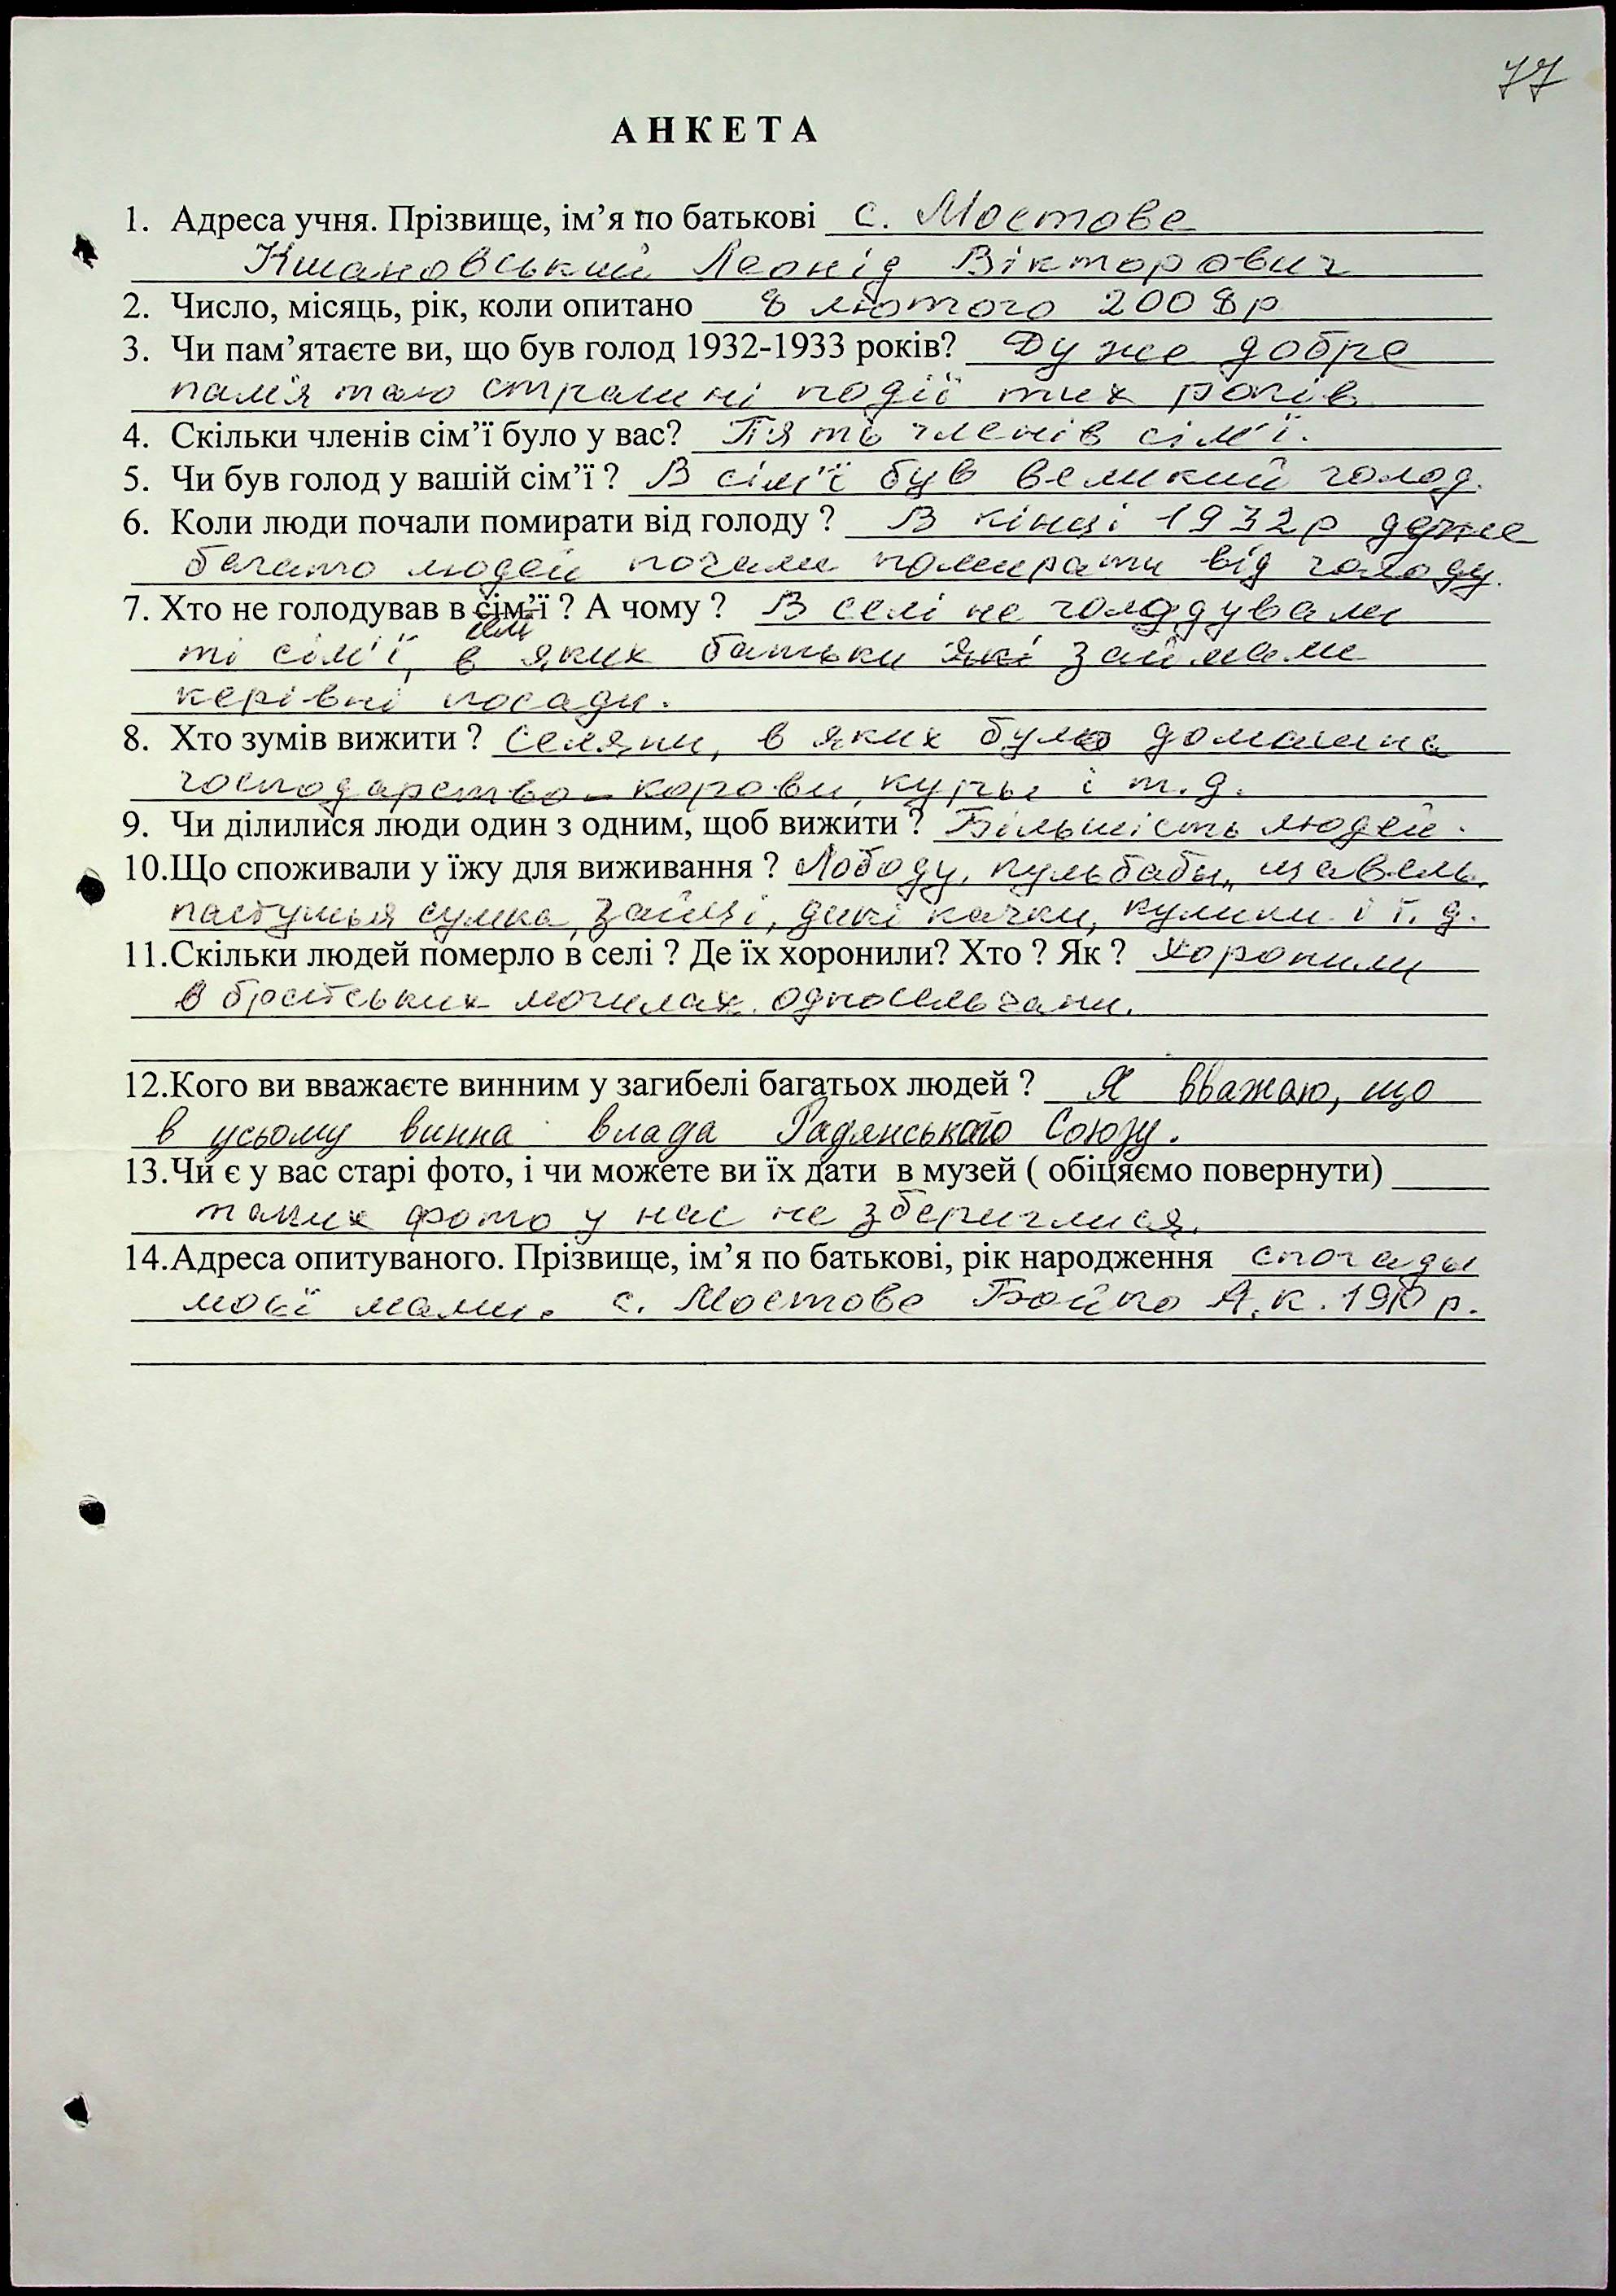 77
АНКЕТА
1. Адреса учня. Прізвище, ім’я по батькові с. Мостове
Кшановський Леонід Вікторович
2. Число, місяць, рік, коли опитано 8 лютого 2008р
3. Чи пам’ятаєте ви, що був голод 1932-1933 років? Дуже добре
пам'я таю страшні події тих років
4. Скільки членів сім’ї було у вас? П'ять членів сім'ї.
5. Чи був голод у вашій сім’ї ? В сім'ї був великий голод.
6. Коли люди почали помирати від голоду ? В кінці 1932р дуже
багато людей почали помирати від голоду.
7. Хто не голодував в сім’ї ? А чому ? В селі не голодували
селі
ті сім'ї, в яких батьки які займали
керівні посади.
8. Хто зумів вижити ? Селяни, в яких було домашнє
господарство – корови, курчы і т. д.
9. Чи ділилися люди один з одним, щоб вижити ? Більшість людей.
10.Що споживали у їжу для виживання ? Лободу, кульбабы, щавель,
пастушья сумка, зайці, дикі качки, кулики і т. д.
11.Скільки людей померло в селі ? Де їх хоронили? Хто ? Як ? Хоронили
в братських могилах односельчани.
12.Кого ви вважаєте винним у загибелі багатьох людей ? Я вважаю, що
в усьому винна влада Радянського Союзу.
13.Чи є у вас старі фото, і чи можете ви їх дати в музей ( обіцяємо повернути)
таких фото у нас не збериглися.
14.Адреса опитуваного. Прізвище, ім’я по батькові, рік народження спогады
моєї мами. с. Мостове Бойко А. К. 1910 р.